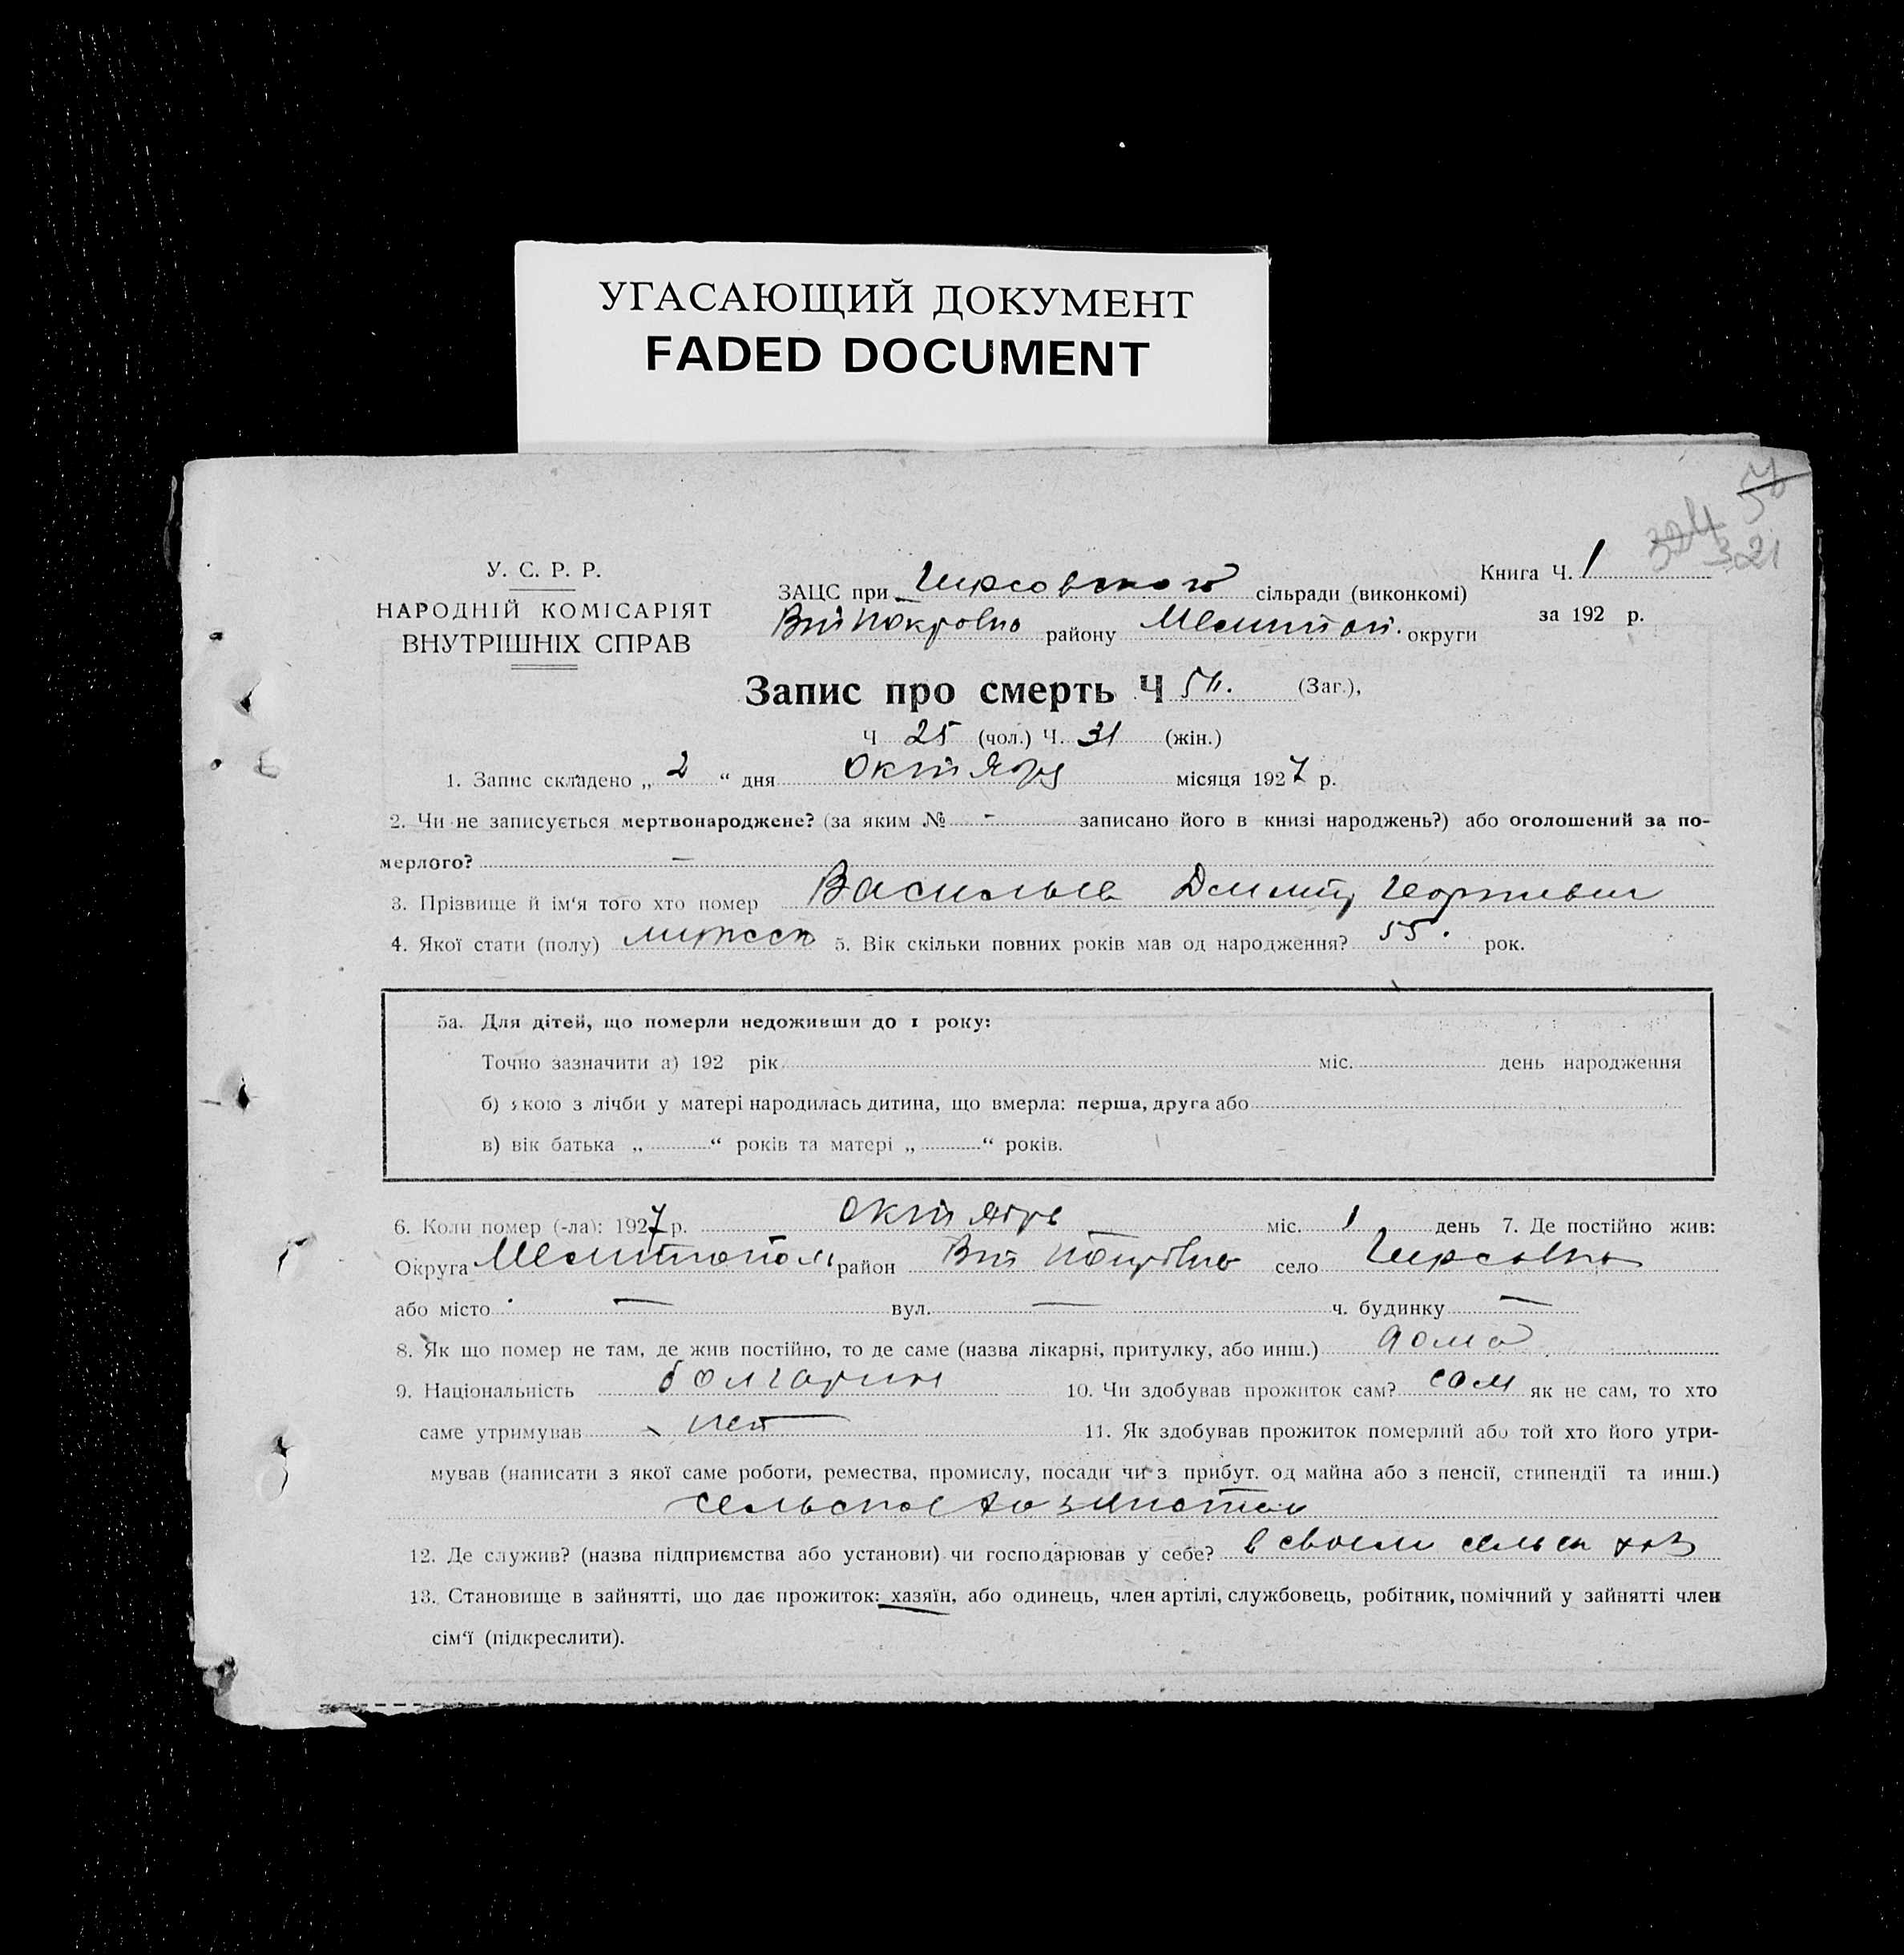 УГАСАЮЩИЙ ДОКУМЕНТ
FADED DOCUMENT
321
У. С. Р. Р.
НАРОДНІЙ КОМІСАРІЯТ
ВНУТРІШНІХ СПРАВ
Книга Ч. 1
за 192 р.
ЗАЦС при Гирсовской сільради (виконкомі)
району Мелитоп. округи
Запис про смерть Ч (Заг.),
Ч 25 (чол.) Ч. 31 (жін.)
1. Запис складено „ 2 “ дня Октября місяця 1927 р.
2. Чи не записується мертвонароджене? (за яким № - записано його в книзі народжень?) або оголошений за по-
мерлого? —
3. Прізвище й ім'я того хто помер Васильев Дмитр Георгиевич
4. Якої стати (полу) мужеск 5. Вік скільки повних років мав од народження? 55. рок.
5а. Для дітей, що померли недоживши до 1 року:
Точно зазначити а) 192 рік міс. день народження
б) якою з лічби у матері народилась дитина, що вмерла: перша, друга або
в) вік батька „ “ років та матері „ “ років.
6. Коли помер (-ла): 1927 р. Октябрь міс. 1 день 7. Де постійно жив:
Округа Мелитополь район село Гирсовка
або місто — вул. — ч. будинку —
8. Як що помер не там, де жив постійно, то де саме (назва лікарні, притулку, або инш.) дома
9. Національність болгарин 10. Чи здобував прожиток сам? сам як не сам, то хто
саме утримував нет 11. Як здобував прожиток померлий або той хто його утри-
мував (написати з якої саме роботи, ремества, промислу, посади чи з прибут. од майна або з пенсії, стипендії та инш.)
12. Де служив? (назва підприємства або установи) чи господарював у себе? в своем сельск хоз
13. Становище в зайнятті, що дає прожиток: хазяїн, або одинець, член артілі, службовець, робітник, помічний у зайнятті член
сім'ї (підкреслити).